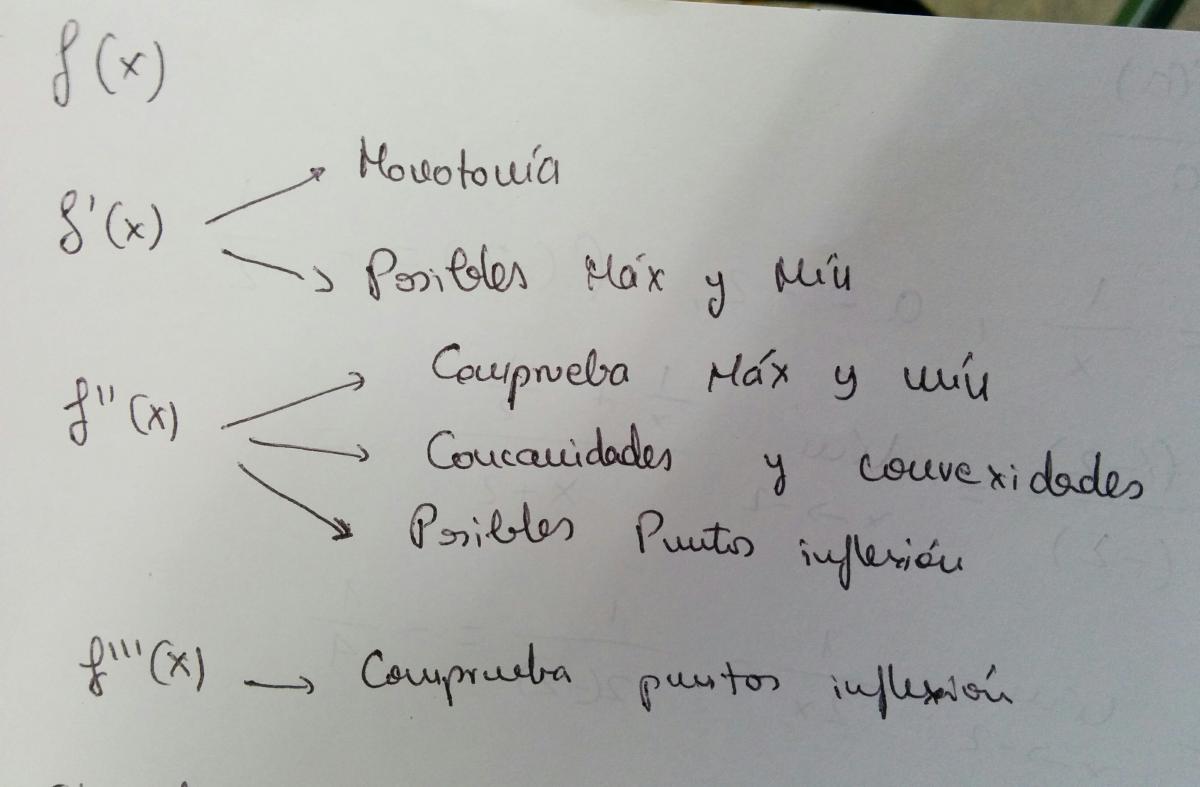 f(x)
Monotonía
f'(x)
Posibles Máx y Mín
Comprueba Máx y mín
f''(x)
Concavidades y convexidades
Posibles Puntos inflexión
f'''(x) → Comprueba puntos inflexión